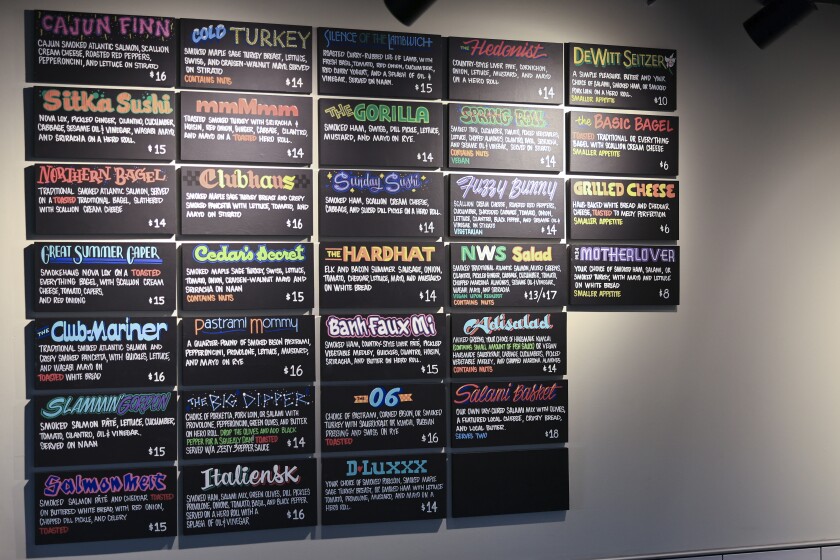 CAJUN FINN
CAJUN SMOKED ATLANTIC SALMON, SCALLION
CREAM CHEESE, ROASTED RED PEPPERS,
PEPPERONCINI, AND LETTUCE ON STIRATO
$16
Sitka Sushi
NOVA LOX, PICKLED GINGER, CILANTRO, CUCUMBER,
CABBAGE, SESAME OIL & VINEGAR, WASABI MAYO,
AND SRIRACHA ON A HERO ROLL.
$15
NORTHERN BAGEL
TRADITIONAL SMOKED ATLANTIC SALMON, SERVED
ON A TOASTED TRADITIONAL BAGEL, SLATHERED
WITH SCALLION CREAM CHEESE
$14
GREAT SUMMER CAPER
SMOKEHAUS NOVA LOX ON A TOASTED
EVERYTHING BAGEL, WITH SCALLION CREAM
CHEESE, TOMATO, CAPERS,
AND RED ONION
$15
THE Club-Mariner
TRADITIONAL SMOKED ATLANTIC SALMON AND
CRISPY SMOKED PANCETTA, WITH LETTUCE,
AND WASABI MAYO ON
TOASTED WHITE BREAD
$16
SLAMMIN
SMOKED SALMON PÂTÉ, LETTUCE, CUCUMBER,
TOMATO, CILANTRO, OIL & VINEGAR,
SERVED ON NAAN
$15
Salmon Melt
SMOKED SALMON PÂTÉ AND CHEDDAR TOASTED
ON BUTTERED WHITE BREAD, WITH RED ONION,
CHOPPED DILL PICKLE, AND CELERY
TOASTED
$15
COLD TURKEY
SMOKED MAPLE SAGE TURKEY BREAST, LETTUCE,
SWISS, AND CRAISEN-WALNUT MAYO SERVED
ON STIRATO
CONTAINS NUTS
$14
mmMmm
TOASTED SMOKED TURKEY WITH SRIRACHA &
HOISIN, RED ONION, GINGER, CABBAGE, CILANTRO,
AND MAYO ON A TOASTED HERO ROLL.
$14
Clubhaus
SMOKED MAPLE SAGE TURKEY BREAST AND CRISPY
SMOKED PANCETTA WITH LETTUCE, TOMATO, AND
MAYO ON STIRATO
$16
Cedar's Secret
SMOKED MAPLE SAGE TURKEY, SWISS, LETTUCE,
TOMATO, ONION, CRAISEN-WALNUT MAYO AND
SRIRACHA ON NAAN
CONTAINS NUTS
$15
Pastrami Mommy
A QUARTER-POUND OF SMOKED BISON PASTRAMI,
PEPPERONCINI, PROVOLONE, LETTUCE, MUSTARD,
AND MAYO ON RYE
$16
THE BIG DIPPER
CHOICE OF PORKETTA, PORK LOIN, OR SALAMI WITH
PROVOLONE, PEPPERONCINI, GREEN OLIVES, AND BUTTER
ON HERO ROLL. DROP THE OLIVES AND ADD BLACK
PEPPER FOR A SQUEALY DAN! TOASTED
SERVED W/A ZESTY 3-PEPPER SAUCE
$14
Italiensk
SMOKED HAM, SALAMI MIX, GREEN OLIVES, DILL PICKLES
PROVOLONE, ONIONS, TOMATO, BASIL, AND BLACK PEPPER.
SERVED ON A HERO ROLL WITH A
SPLASH OF OIL & VINEGAR
$16
SILENCE OF THE LAMBWICH
ROASTED CURRY-RUBBED LEG OF LAMB, WITH
FRESH BASIL, TOMATO, RED ONION, CUCUMBER,
RED CURRY YOGURT, AND A SPLASH OF OIL &
VINEGAR. SERVED ON NAAN.
$15
THE GORILLA
SMOKED HAM, SWISS, DILL PICKLE, LETTUCE,
MUSTARD, AND MAYO ON RYE.
$14
Sunday Sushi
SMOKED HAM, SCALLION CREAM CHEESE,
CABBAGE, AND SLICED DILL PICKLE ON A HERO ROLL.
$14
THE HARDHAT
ELK AND BACON SUMMER SAUSAGE, ONION,
TOMATO, CHEDDAR, LETTUCE, MAYO, AND MUSTARD
ON WHITE BREAD
$14
Banh Faux Mi
SMOKED HAM, COUNTRY-STYLE LIVER PÂTÉ, PICKLED
VEGETABLE MEDLEY, CILANTRO, HOISIN,
SRIRACHA, AND BUTTER ON HERO ROLL
$15
06
CHOICE OF PASTRAMI, CORNED BISON, OR SMOKED
TURKEY WITH SAUERKRAUT OR KIMCHI, RUSSIAN
DRESSING AND SWISS ON RYE
TOASTED
$16
D-LUXXX
YOUR CHOICE OF SMOKED PORKLOIN, SMOKED MAPLE
SAGE TURKEY BREAST, OR SMOKED HAM WITH LETTUCE
TOMATO, PROVOLONE, MUSTARD, AND MAYO ON A
HERO ROLL
$14
The Hedonist
COUNTRY-STYLE LIVER PÂTÉ, CORNICHON,
ONION, LETTUCE, MUSTARD, AND MAYO
ON A HERO ROLL
$14
SPRING ROLL
SMOKED TOFU, CUCUMBER, TOMATO,
CONTAINS NUTS
VEGAN
$14
Fuzzy Bunny
SCALLION CREAM CHEESE, ROASTED RED PEPPERS,
CUCUMBER, SHREDDED CABBAGE, TOMATO, ONION,
LETTUCE, CILANTRO, BLACK PEPPER, AND SESAME OIL &
VINEGAR ON WHITE BREAD
VEGETARIAN
$14
NWS Salad
SMOKED TRADITIONAL ATLANTIC SALMON, MIXED GREENS,
CILANTRO, PICKLED GINGER, CABBAGE, CUCUMBER, TOMATO,
CHOPPED ALMONDS, SESAME OIL & VINEGAR,
WASABI MAYO, AND SRIRACHA
VEGAN UPON REQUEST
CONTAINS NUTS
$13/$17
Adisalad
MIXED GREENS, YOUR CHOICE OF HANDMADE KIMCHI
(CONTAINS SMALL AMOUNT OF FISH SAUCE) OR VEGAN
HANDMADE SAUERKRAUT, CABBAGE, CUCUMBERS, PICKLED
VEGETABLE MEDLEY, AND CHOPPED ALMONDS
CONTAINS NUTS
$14
Salami Basket
OUR OWN DRY-CURED SALAMI MIX WITH OLIVES,
A FEATURED LOCAL CHEESE, CRUSTY BREAD,
AND LOCAL BUTTER.
SERVES TWO
$18
DEWITT SEITZER
A SIMPLE PLEASURE. BUTTER AND YOUR
CHOICE OF SALAMI, SMOKED HAM, OR SMOKED
PORK LOIN ON A HERO ROLL.
SMALLER APPETITE
$10
the BASIC BAGEL
TOASTED TRADITIONAL OR EVERYTHING
BAGEL WITH SCALLION CREAM CHEESE
SMALLER APPETITE
$6
GRILLED CHEESE
HAUS-BAKED WHITE BREAD AND CHEDDAR
CHEESE, TOASTED TO MELTY PERFECTION.
SMALLER APPETITE
$6
THE MOTHERLOVER
YOUR CHOICE OF SMOKED HAM, SALAMI, OR
SMOKED TURKEY, WITH MAYO AND LETTUCE
ON WHITE BREAD
SMALLER APPETITE
$8